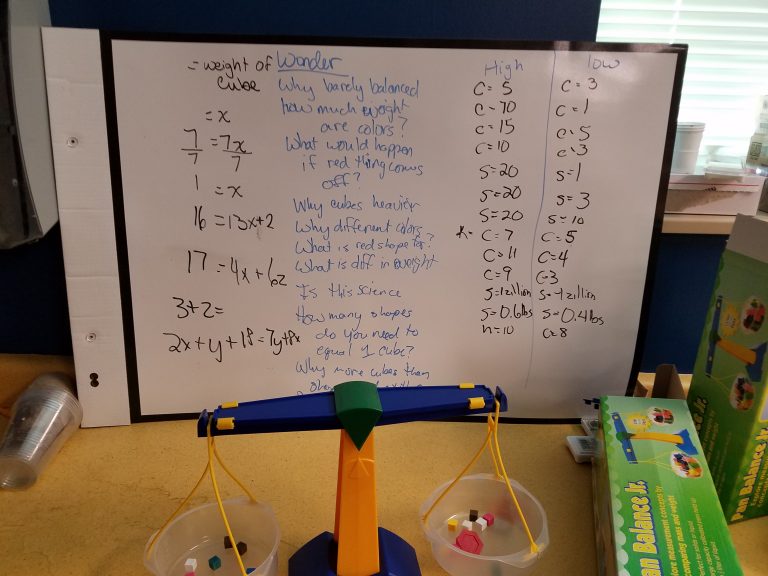 = weight of
cube
= x
7/7 = 7x/7
1 = x
16 = 13x+2
17 = 4x+6z
3+2=
2x+y+18=7y+8x
Wonder
Why barely balanced
how much weight
are colors?
What would happen
if red thing comes
off?
Why cubes heavier
Why different colors
What is red shape for?
What is diff in weight
Is this science
How many shapes
do you need to
equal 1 cube?
Why more cubes than
High
C=5
C=70
C=15
C=10
S=20
S=20
S=20
C=7
C=11
C=9
S=1zillion
S=0.6lbs
h=10
low
C=3
C=1
C=5
C=3
S=1
S=3
S=10
C=5
C=4
C=3
S=-1zillion
S=0.4lbs
C=8
Pan Balance Jr.
Pan Balance Jr.
measurement concepts by
comparing mass and weight